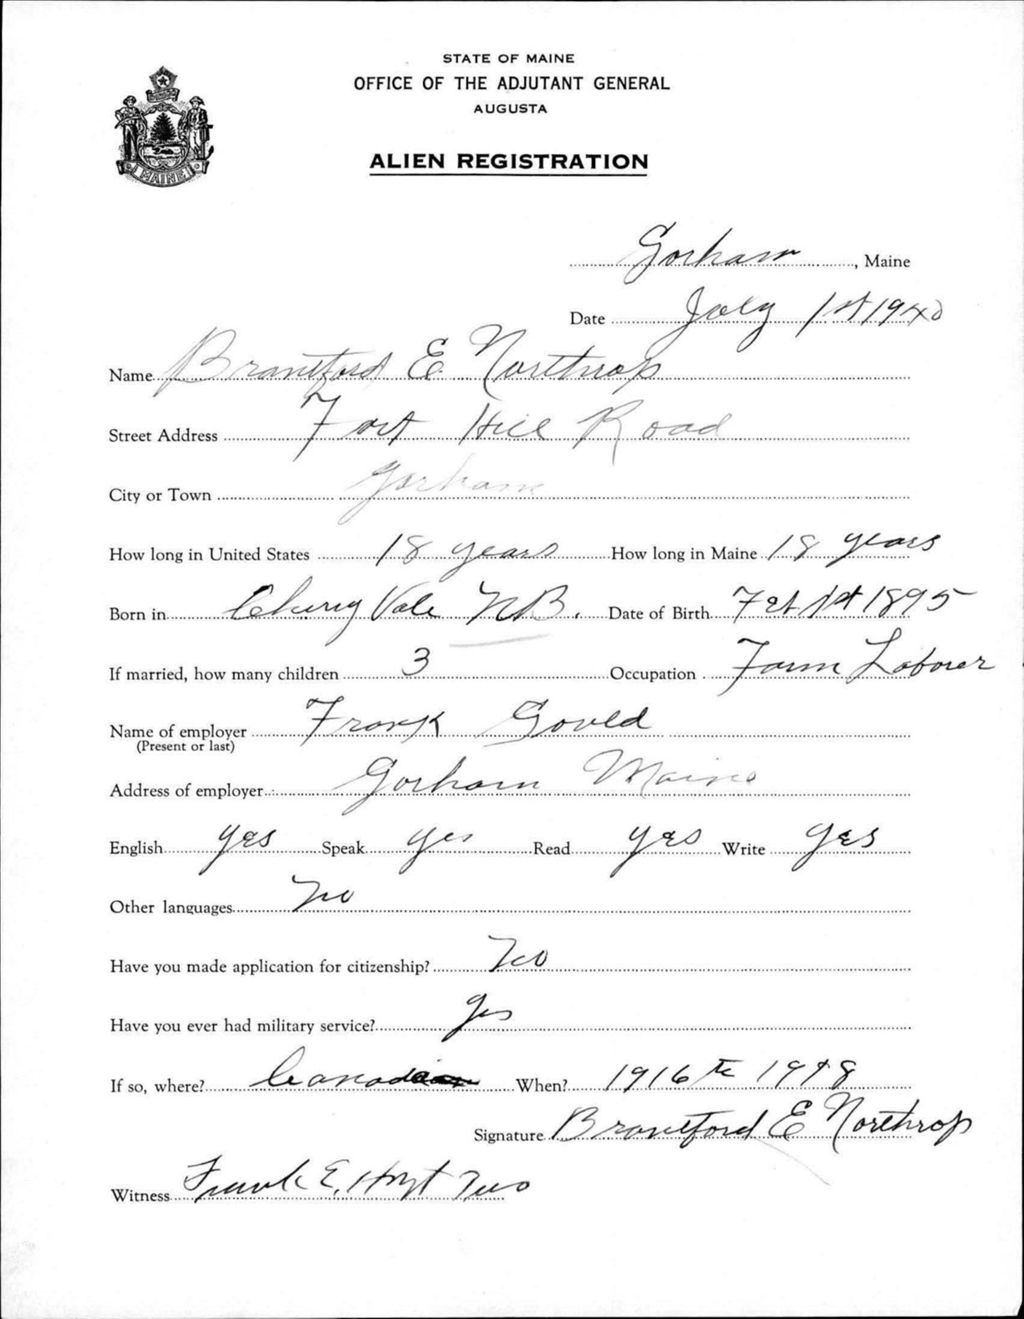 STATE OF MAINE
OFFICE OF THE ADJUTANT GENERAL
AUGUSTA
ALIEN REGISTRATION
MAINE
Gorham, Maine
Date July 1st 1940
Name Brantford E Northrop
Street Address Fort Hill Road
City or Town Gorham
How long in United States 18 years How long in Maine 18 years
Born in Cherry Vale NB. Date of Birth Feb 1st 1895
If married, how many children 3 Occupation Farm Laborer
Name of employer Frank Gould
(Present or last)
Address of employer Gorham Maine
English yes Speak yes Read yes Write yes
Other languages No
Have you made application for citizenship? No
Have you ever had military service? yes
If so, where? When? 1916 to 1918
Signature Brantford E Northrop
Witness Frank E. Hoyt